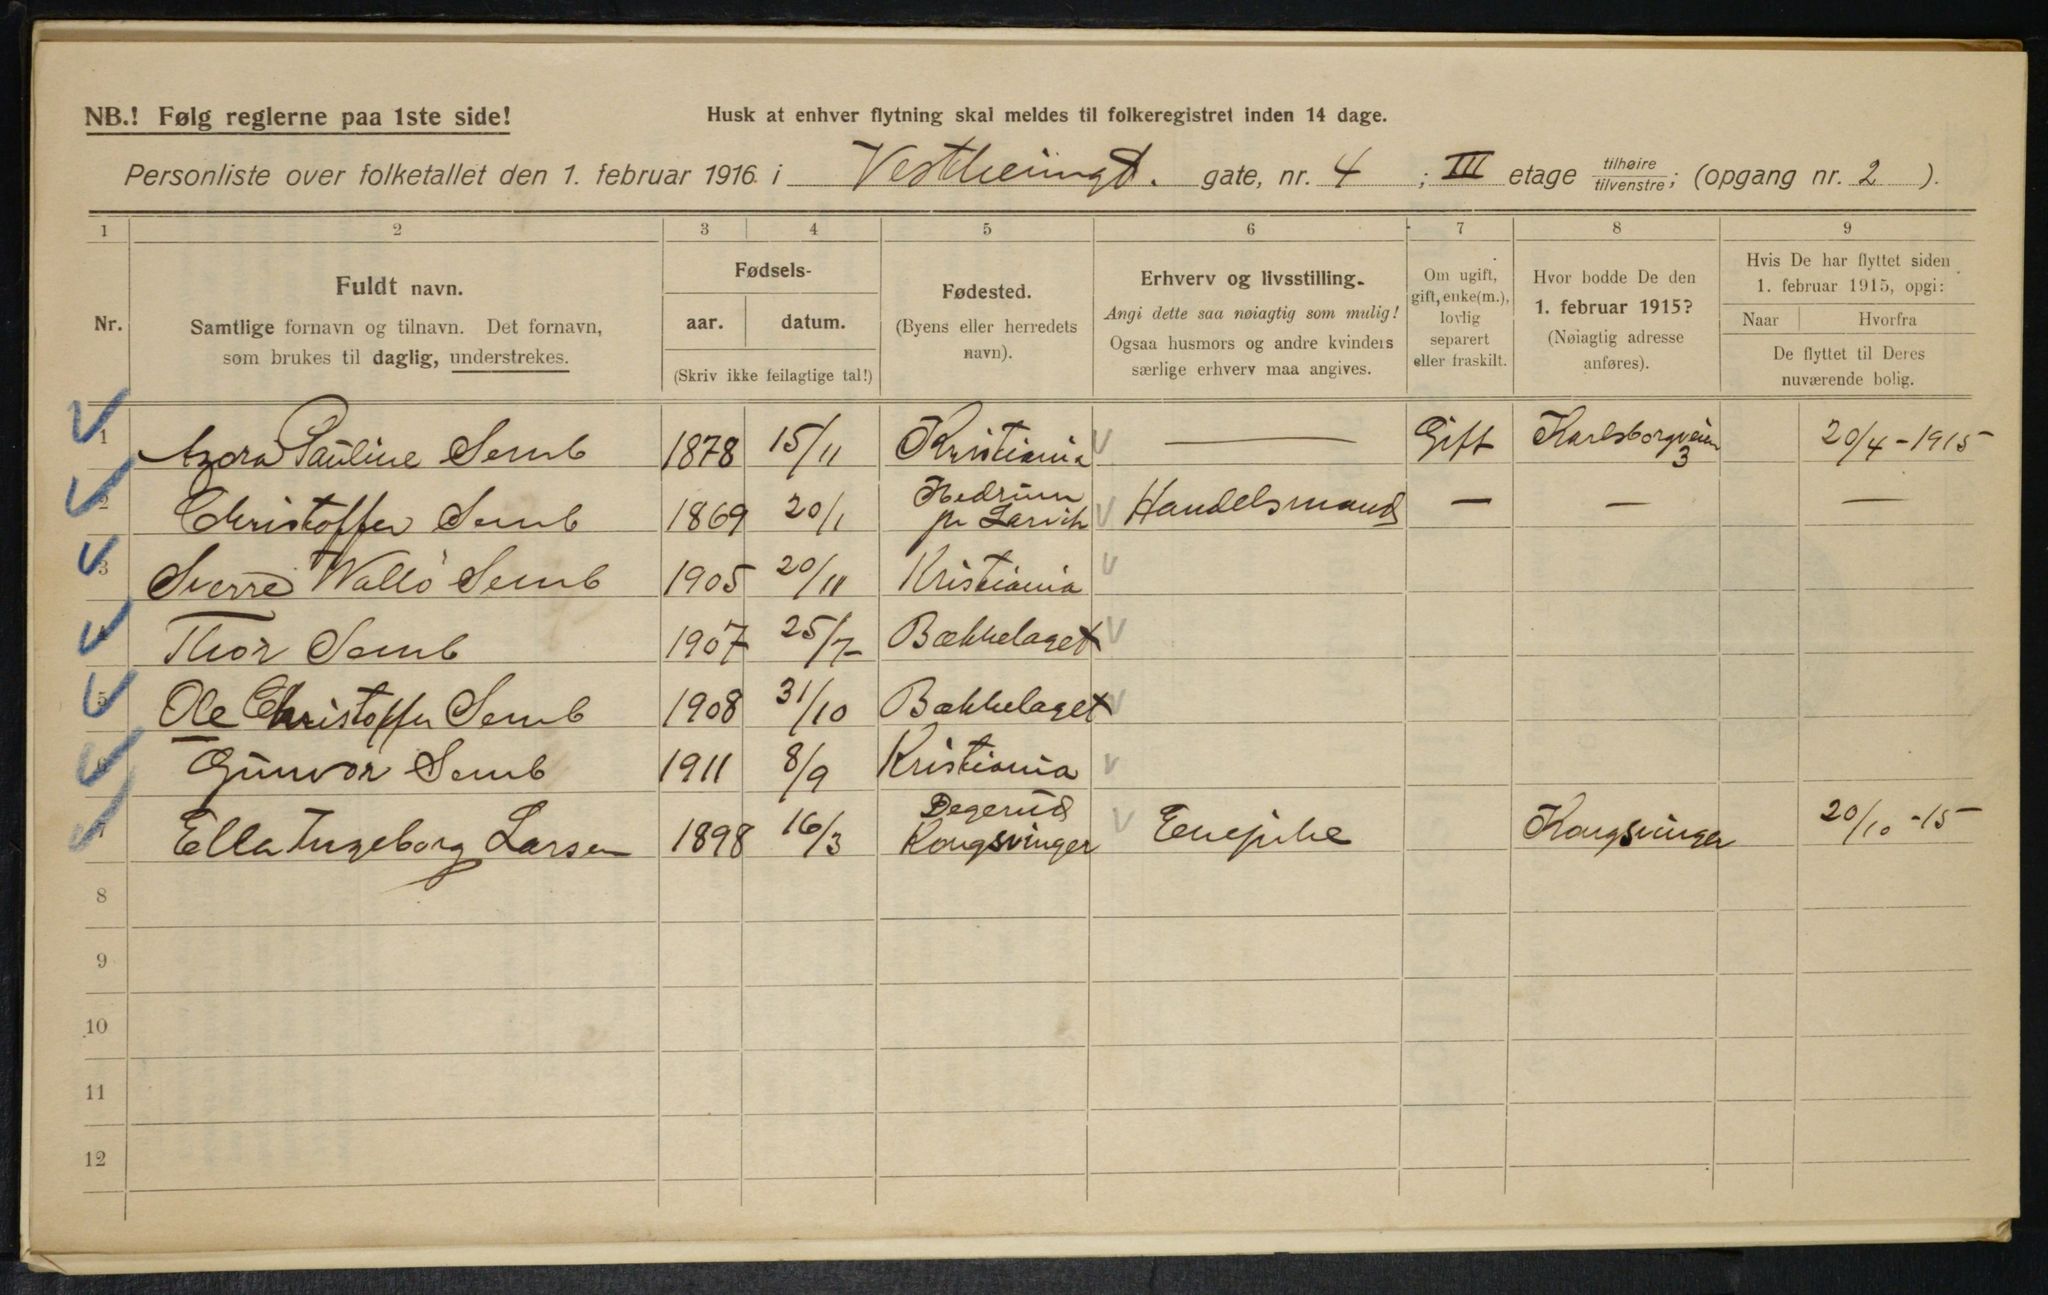 NB.! Følg reglerne paa 1ste side!
Husk at enhver flytning skal meldes til folkeregistret inden 14 dage.
Personliste over folketallet den 1. februar 1916 i Vestheimgt. gate, nr. 4 ; III etage tilhøire / tilvenstre ; (opgang nr. 2 ).
1 2 3 4 5 6 7 8 9
Nr.
Fuldt navn.
Samtlige fornavn og tilnavn. Det fornavn,
som brukes til daglig, understrekes.
Fødsels-
aar. datum.
(Skriv ikke feilagtige tal!)
Fødested.
(Byens eller herredets
navn).
Erhverv og livsstilling.
Angi dette saa nøiagtig som mulig!
Ogsaa husmors og andre kvinders
særlige erhverv maa angives.
Om ugift,
gift, enke(m.),
lovlig
separert
eller fraskilt.
Hvor bodde De den
1. februar 1915?
(Nøiagtig adresse
anføres).
Hvis De har flyttet siden
1. februar 1915, opgi:
Naar Hvorfra
De flyttet til Deres
nuværende bolig.
1 Azora Pauline Semb 1878 15/11 Kristiania — Gift Karlsborgveien 3 20/4 - 1915
2 Christoffer Semb 1869 20/1 Hedrum pr Larvik Handelsmand — — —
3 Sverre Wallö Semb 1905 20/11 Kristiania
4 Thor Semb 1907 25/7 Bækkelaget
5 Ole Christoffer Semb 1908 31/10 Bækkelaget
6 Gunvor Semb 1911 8/9 Kristiania
7 Ella Ingeborg Larsen 1898 16/3 Degerud Kongsvinger Enepike Kongsvinger 20/10 - 15
8
9
10
11
12